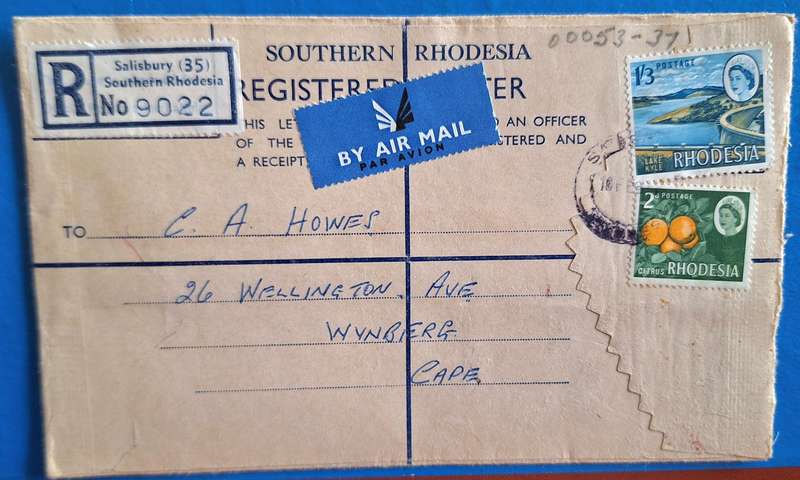 00053-37
Salisbury (35)
Southern Rhodesia
R No 9022
SOUTHERN RHODESIA
REGISTERED TER
THIS LE TO AN OFFICER
OF THE ISTERED AND
A RECEIPT
BY AIR MAIL
PAR AVION
1/3 POSTAGE
LAKE KYLE RHODESIA
2d POSTAGE
CITRUS RHODESIA
TO C. A. HOWES
26 WELLINGTON. AVE
WYNBERG
CAPE